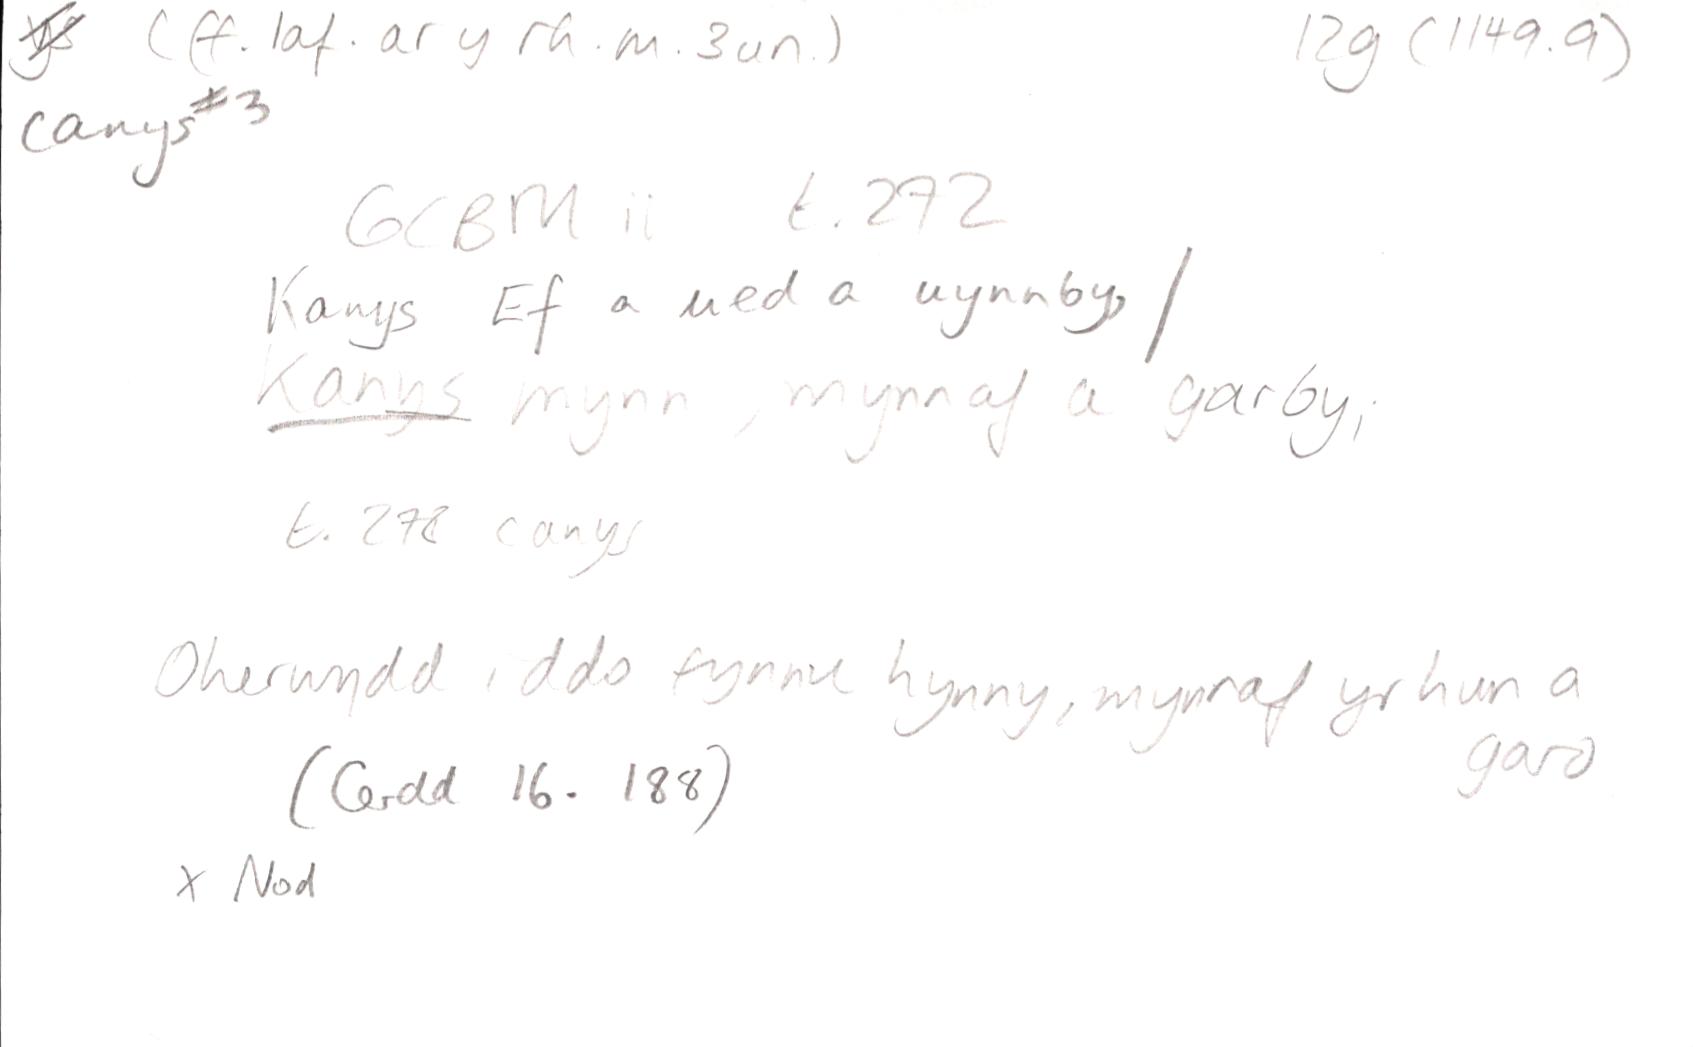 (ff. laf. ar y rh. m. 3 un.) 12g (1149.9)
canys #3
GCBM ii t. 272
Kanys Ef a ued a uynnby, /
Kanys mynn, mynnaf a garby;
t. 278 canys
Oherwydd iddo fynnu hynny, mynnaf yr hun a
garo
(Cerdd 16. 188)
x Nod